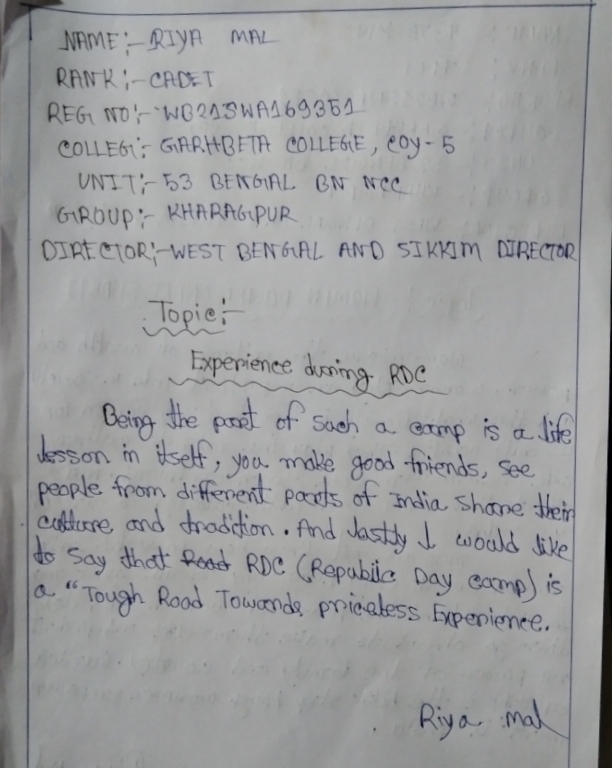 NAME:- RIYA MAL
RANK:- CADET
REG NO:- WB21SWA169351
COLLEG:- GARHBETA COLLEGE, COY-5
UNIT:- 53 BENGAL BN NCC
GROUP:- KHARAGPUR
DIRECTOR:- WEST BENGAL AND SIKKIM DIRECTOR
Topic:-
Experience during RDC
Being the part of such a camp is a life
lesson in itself, you make good friends, see
people from different parts of India share their
culture and tradition. And lastly I would like
to say that Road RDC (Republic Day camp) is
a "Tough Road Towards priceless Experience.
Riya Mal